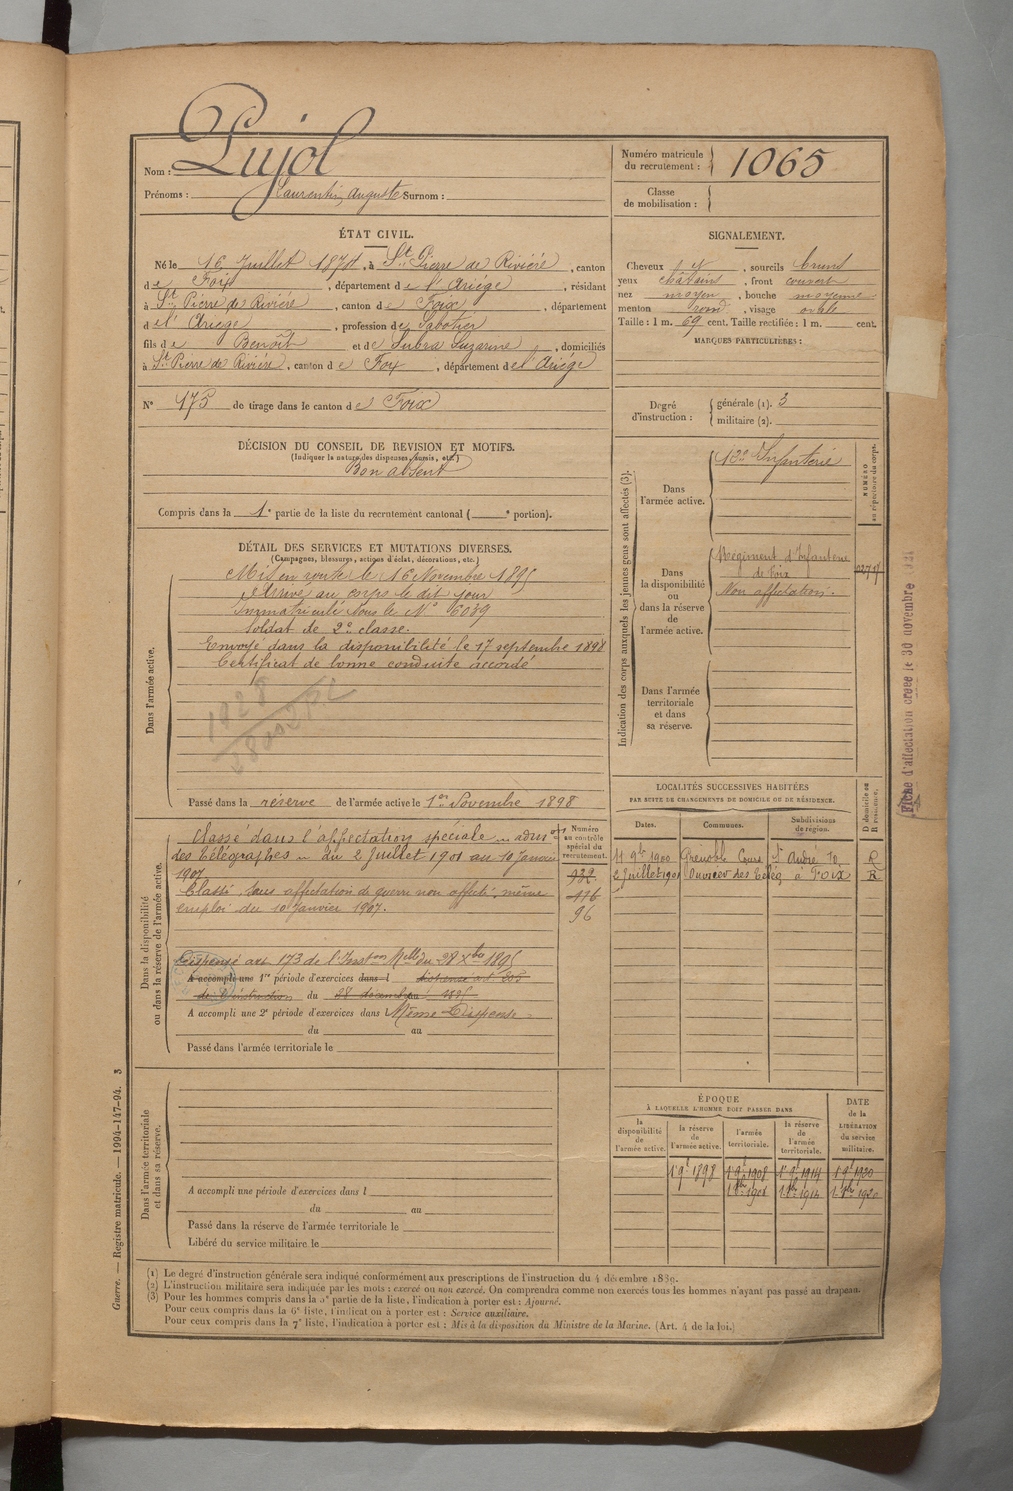 Nom : Pujol
Prénoms : Laurentin Auguste Surnom :
Numéro matricule du recrutement : 1065
Classe de mobilisation :
ÉTAT CIVIL.
Né le 16 Juillet 1874, à St Pierre de Rivière, canton
de Foix, département de l'Ariège, résidant
à St Pierre de Rivière, canton de Foix, département
d el' Ariège, profession de Sabotier
fils de Benoît et de Subra Suzanne, domiciliés
à St Pierre de Rivière, canton de Foix, département de l'Ariége
N° 175 de tirage dans le canton de Foix
SIGNALEMENT.
Cheveux , sourcils bruns
yeux châtains, front couvert
nez moyen, bouche moyenne
menton rond, visage ovale
Taille : 1 m. 69 cent. Taille rectifiée : 1 m. cent.
MARQUES PARTICULIÈRES :
Degré d'instruction : générale (1). 3
militaire (2).
DÉCISION DU CONSEIL DE REVISION ET MOTIFS.
(Indiquer la nature des dispenses, sursis, etc.)
Bon absent
Compris dans la 1e partie de la liste du recrutement cantonal ( e portion).
DÉTAIL DES SERVICES ET MUTATIONS DIVERSES.
(Campagnes, blessures, actions d'éclat, décorations, etc.)
Dans l'armée active.
Mis en route le 16 Novembre 1895
Arrivé au corps le dit jour
Immatriculé sous le N° 6039
Soldat de 2e classe.
Envoyé dans la disponibilité le 17 septembre 1898
Certificat de bonne conduite accordé
1928
Passé dans la réserve de l'armée active le 1er Novembre 1898
Indication des corps auxquels les jeunes gens sont affectés (3).
NUMÉRO au répertoire du corps.
Dans l'armée active.
Infanterie
Dans la disponibilité ou dans la réserve de l'armée active.
Régiment d'Infanterie
de Foix
Non affectation.
Dans l'armée territoriale et dans sa réserve.
Fiche d'affectation créée le 30 novembre
LOCALITÉS SUCCESSIVES HABITÉES
PAR SUITE DE CHANGEMENTS DE DOMICILE OU DE RÉSIDENCE.
Dates. Communes. Subdivisions de région. D domicile ou R résidence.
11 9bre 1900 Grenoble Cours St André 10. R
2 Juillet 1901 Ouvrier des Télég à Foix R
Dans la disponibilité ou dans la réserve de l'armée active.
Numéro au contrôle spécial du recrutement.
Classé dans l'affectation spéciale
des Télégraphes du 2 Juillet 1901 au 10 Janvier
1907
Classé sans affectation de guerre non affecté, même
emploi du 10 Janvier 1907.
932
116
96
Dispensé art 173 de l'Inston Melle du 28 Xbre 1895
A accompli une 1re période d'exercices dans l
de l'instruction du 28 décembre au 1895
A accompli une 2e période d'exercices dans l Même Dispense
du au
Passé dans l'armée territoriale le
Dans l'armée territoriale et dans sa réserve.
A accompli une période d'exercices dans l
du au
Passé dans la réserve de l'armée territoriale le
Libéré du service militaire le
ÉPOQUE
À LAQUELLE L'HOMME DOIT PASSER DANS
la disponibilité de l'armée active. la réserve de l'armée active. l'armée territoriale. la réserve de l'armée territoriale.
DATE de la LIBÉRATION du service militaire.
1 9e 1898 1 9e 1908 1 9e 1914 1 9e 1920
Guerre. — Registre matricule. — 1994-147-94. 3
(1) Le degré d'instruction générale sera indiqué conformément aux prescriptions de l'instruction du 4 décembre 1889.
(2) L'instruction militaire sera indiquée par les mots : exercé ou non exercé. On comprendra comme non exercés tous les hommes n'ayant pas passé au drapeau.
(3) Pour les hommes compris dans la 5e partie de la liste, l'indication à porter est : Ajourné.
Pour ceux compris dans la 6e liste, l'indication à porter est : Service auxiliaire.
Pour ceux compris dans la 7e liste, l'indication à porter est : Mis à la disposition du Ministre de la Marine. (Art. 4 de la loi.)